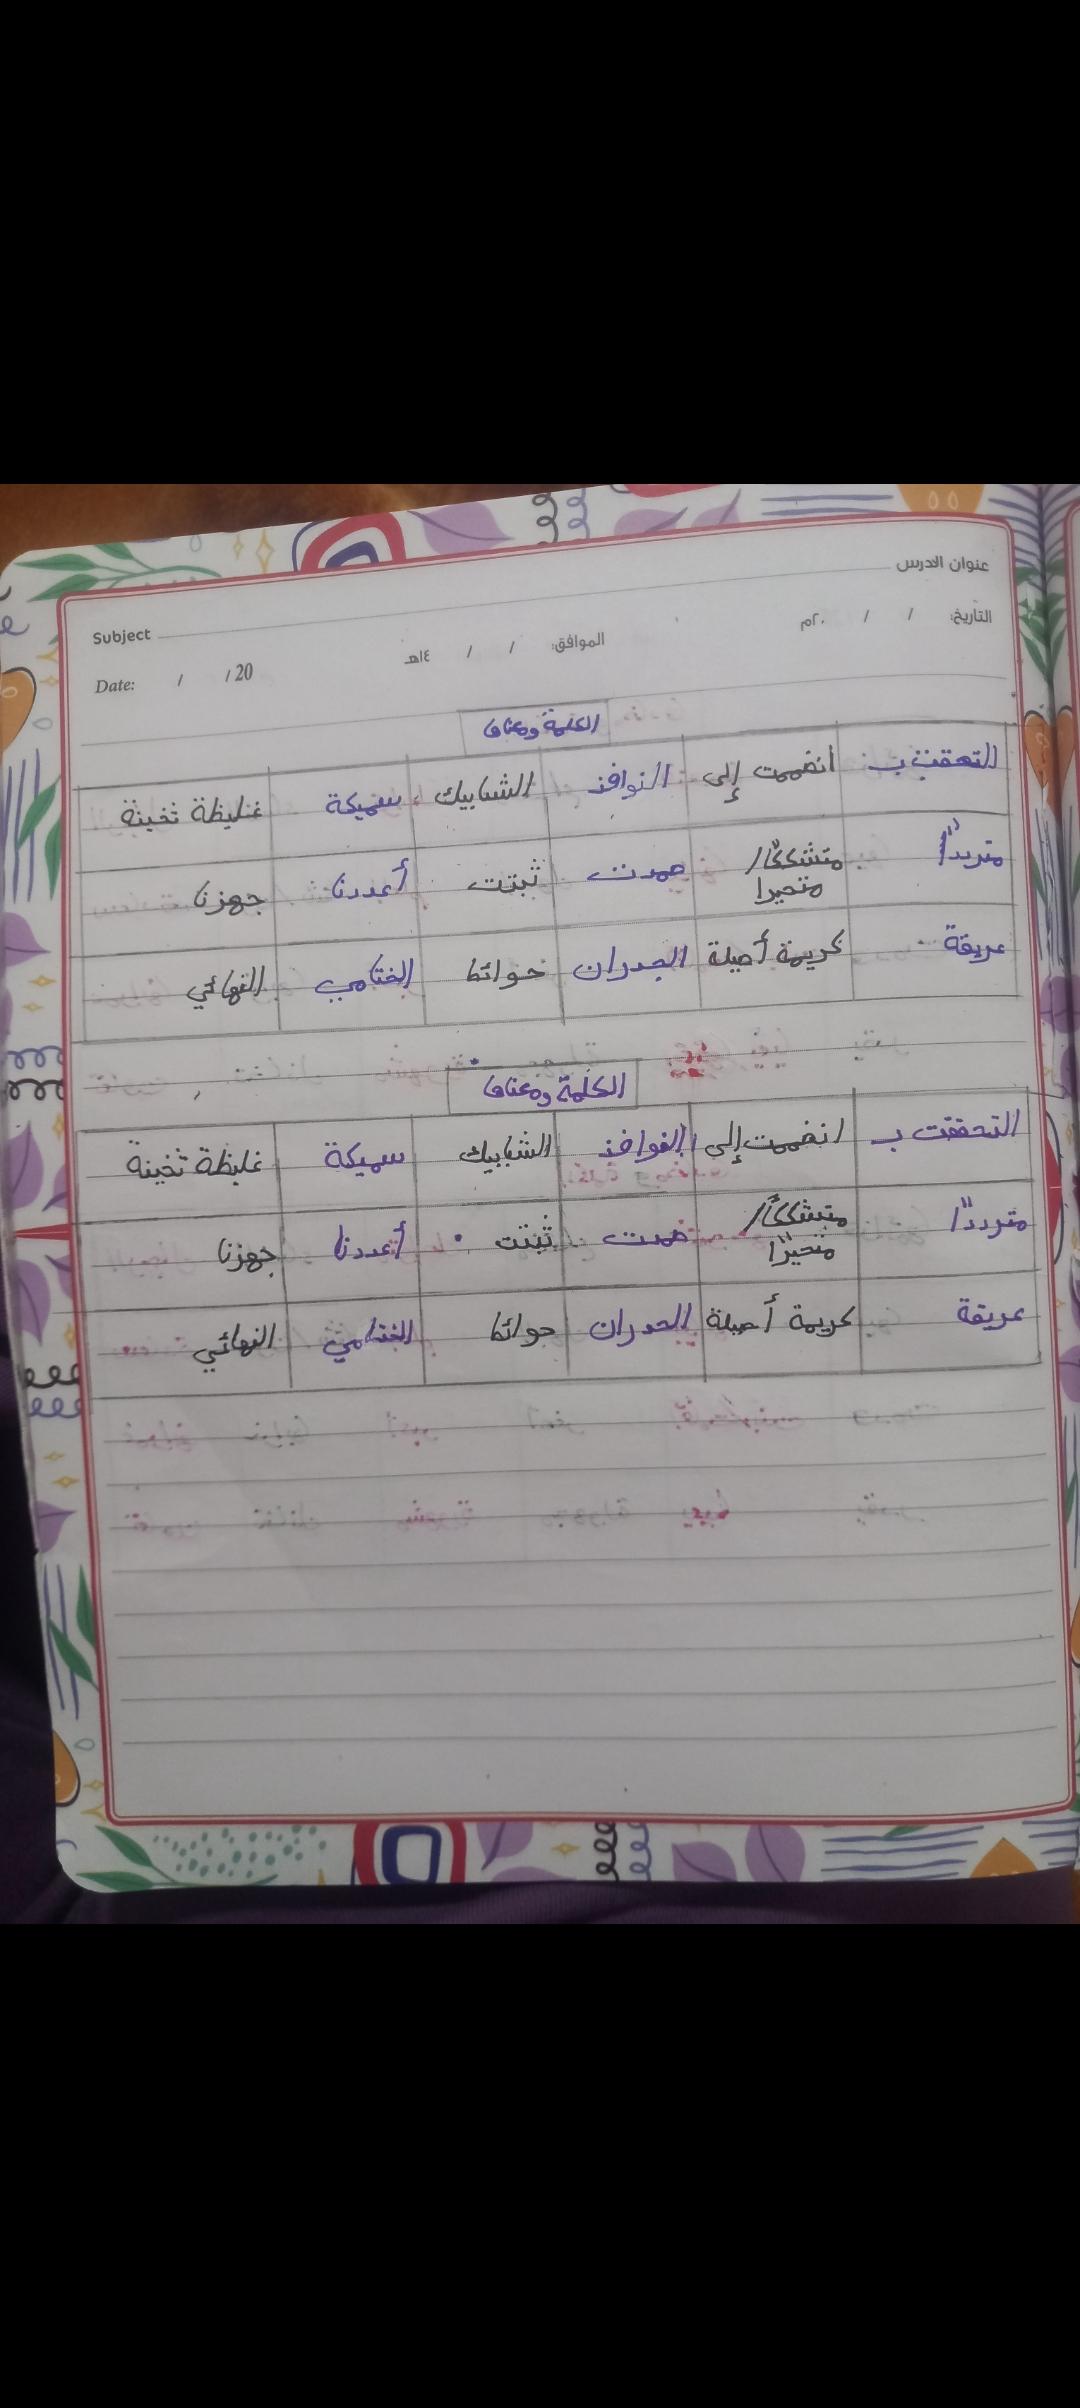 عنوان الدرس
Subject
التاريخ: / / ٢٠م الموافق: / / ١٤هـ
Date: / / 20
الكلمة ومعناها
التحقت بـ انضممت إلى النوافذ الشبابيك سميكة غليظة تخينة
مترددًا متشككًا/ متحيرا صمدت ثبتت أعددنا جهزنا
عريقة كريمة أصيلة الجدران حوائط الختامي النهائي
الكلمة ومعناها
التحققت بـ انضممت إلى النوافذ الشبابيك سميكة غليظة تخينة
مترددًا متشككًا/ متحيرًا صمدت ثبتت أعددنا جهزنا
عريقة كريمة أصيلة الجدران حوائط الختامي النهائي